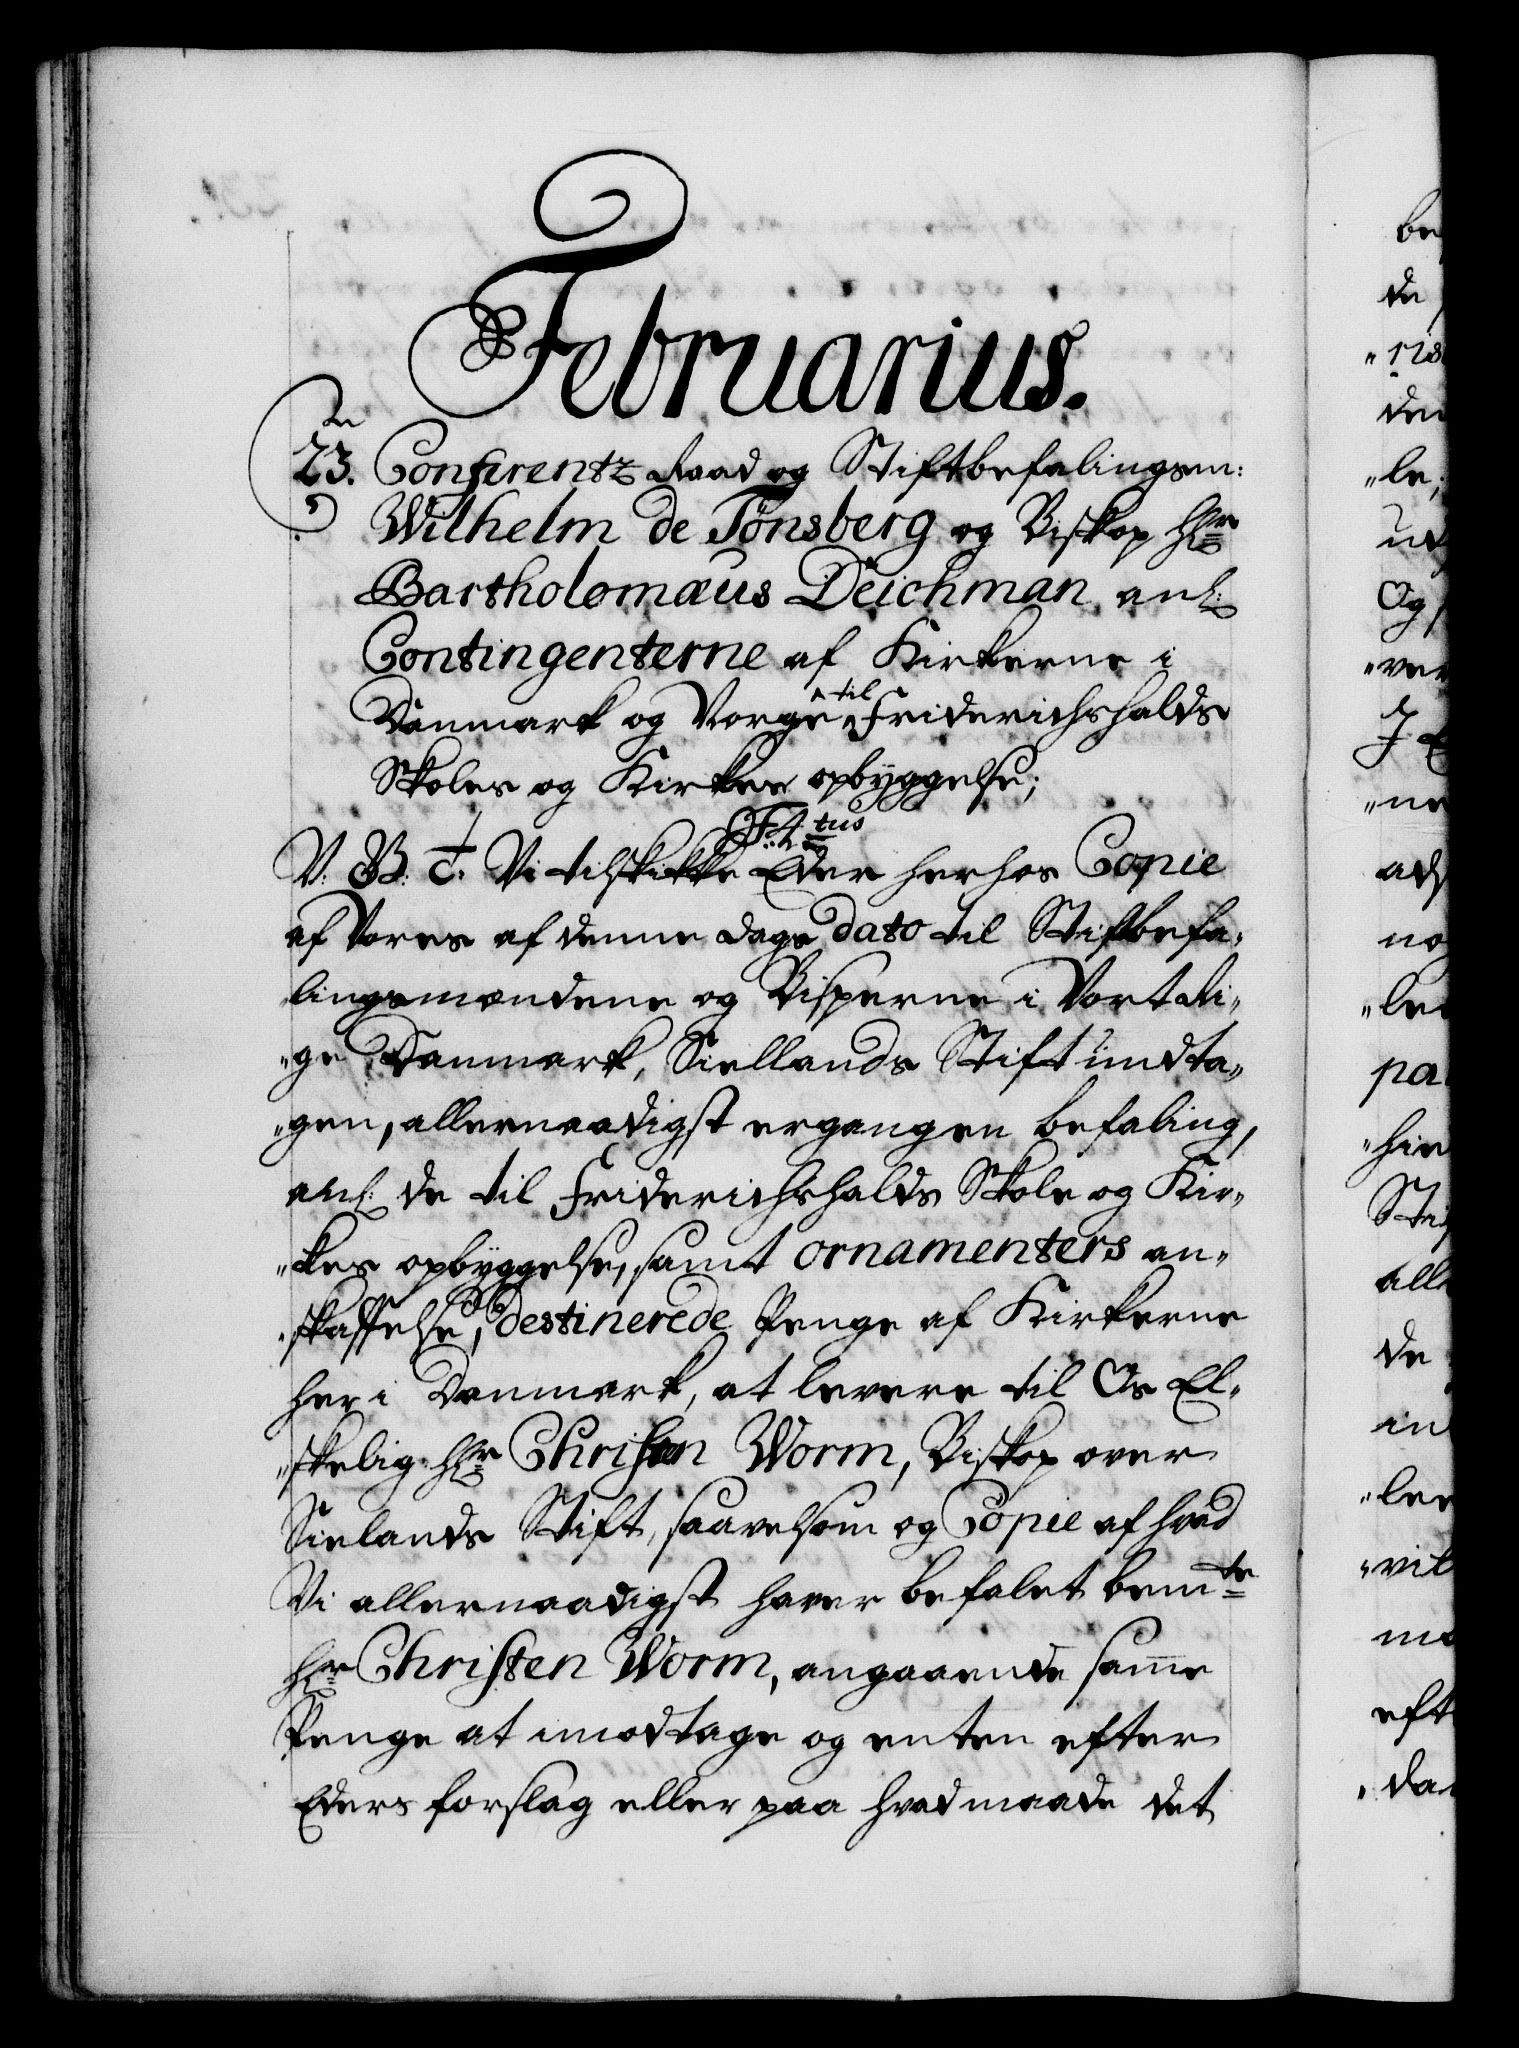 Februarius.
23. Conferentz Raad og Stiftbefalingsm:
Wilhelm de Tönsberg og Biskop Hr
Bartholomæus Deichman anl:
Contingenterne af Kirkerne i
Danmark og Norge til Friderichshalds
Skoles og Kirkes opbÿggelse;
F: 4tus
V. G. T. Vi tilskikke Eder herhos Copie
af Vores af denne dags dato til Stiftbefa„
lingsmændene og Bisperne i Vort Ri„
„ge Danmark, Siellands Stift undta„
„gen, allernaadigst ergangen befaling,
anl: de til Friderichshalds Skole og Kir„
„kes opbÿggelse, samt ornamenters an„
„skaffelse, destinerede Penge af Kirkerne
her i Danmark, at levere til Os El„
„skelig Hr Christen Worm, Biskop over
Sielands Stift, saavelsom og Copie af hvad
Vi allernaadigst haver befalet bemte
Hr Christen Worm, angaaende samme
Penge at imodtage og enten efter
Eders forslag eller paa hvad maade det